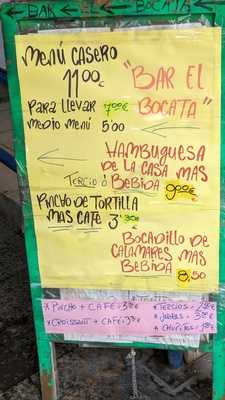 BAR EL BOCATA
MENÚ CASERO
11'00€
"BAR EL
BOCATA"
PARA LLEVAR 7'00€
MEDIO MENÚ 5'00
HAMBUGUESA
DE LA CASA MAS
TERCIO ó BEBIDA 9'00€
PINCHO DE TORTILLA
MAS CAFE 3'30€
BOCADILLO DE
CALAMARES MAS
BEBIDA 8,50
* PINCHO + CAFÉ =
* CROISSANT + CAFÉ =
* TERCIOS =
* JARRAS =
* CHUPITOS =